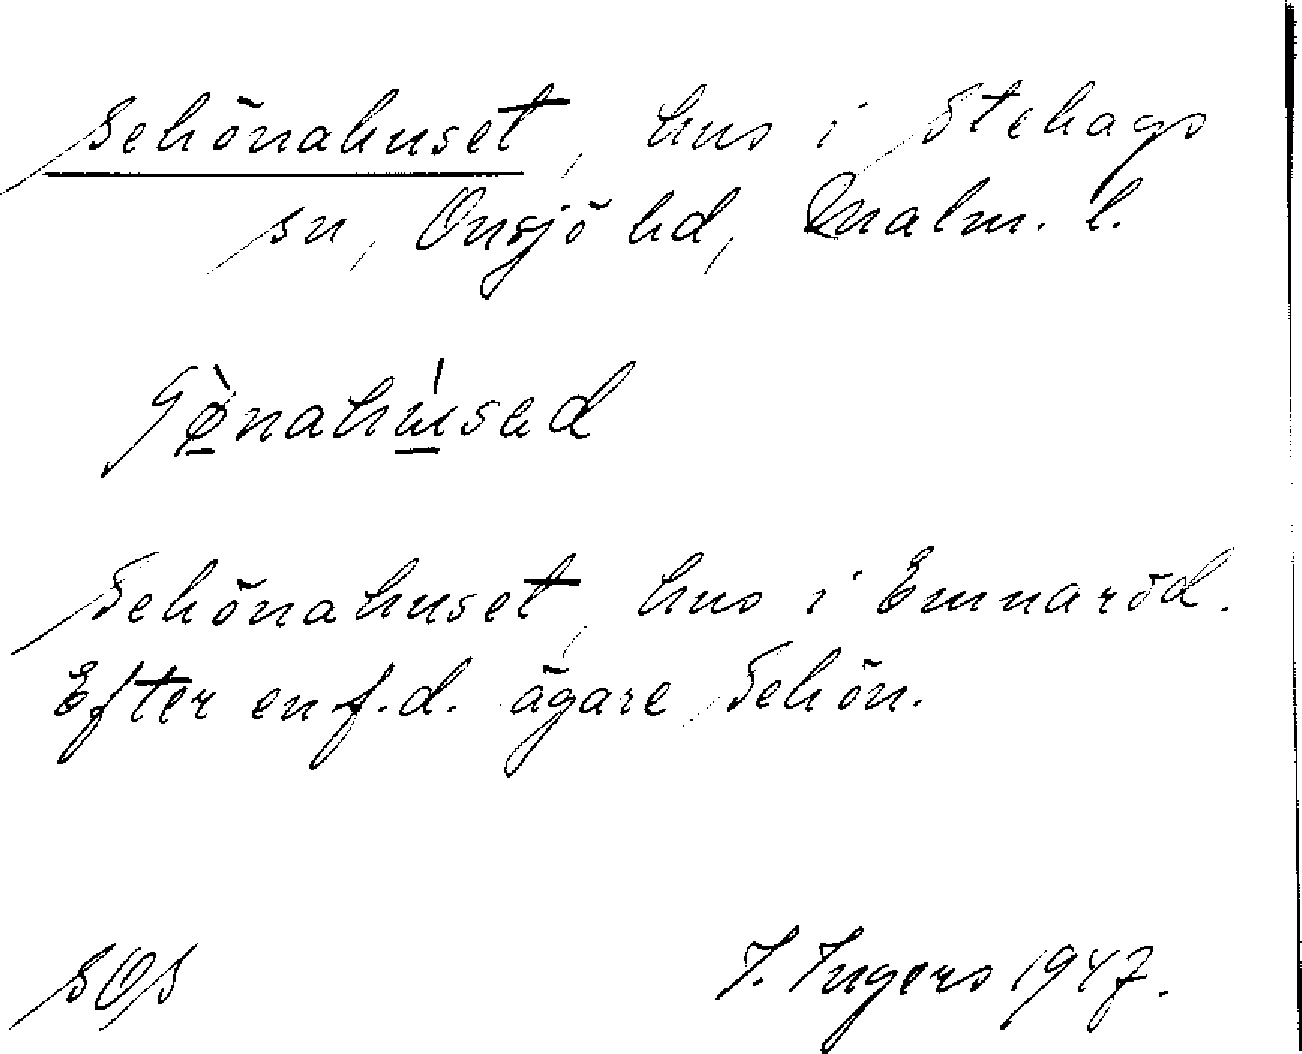 Schönahuset, hus i Stehags
sn, Onsjö hd, Malm. l.
Schönahuset, hus i Emmaröd.
Efter en f.d. ägare Schön.
SOS I. Ingers 1947.